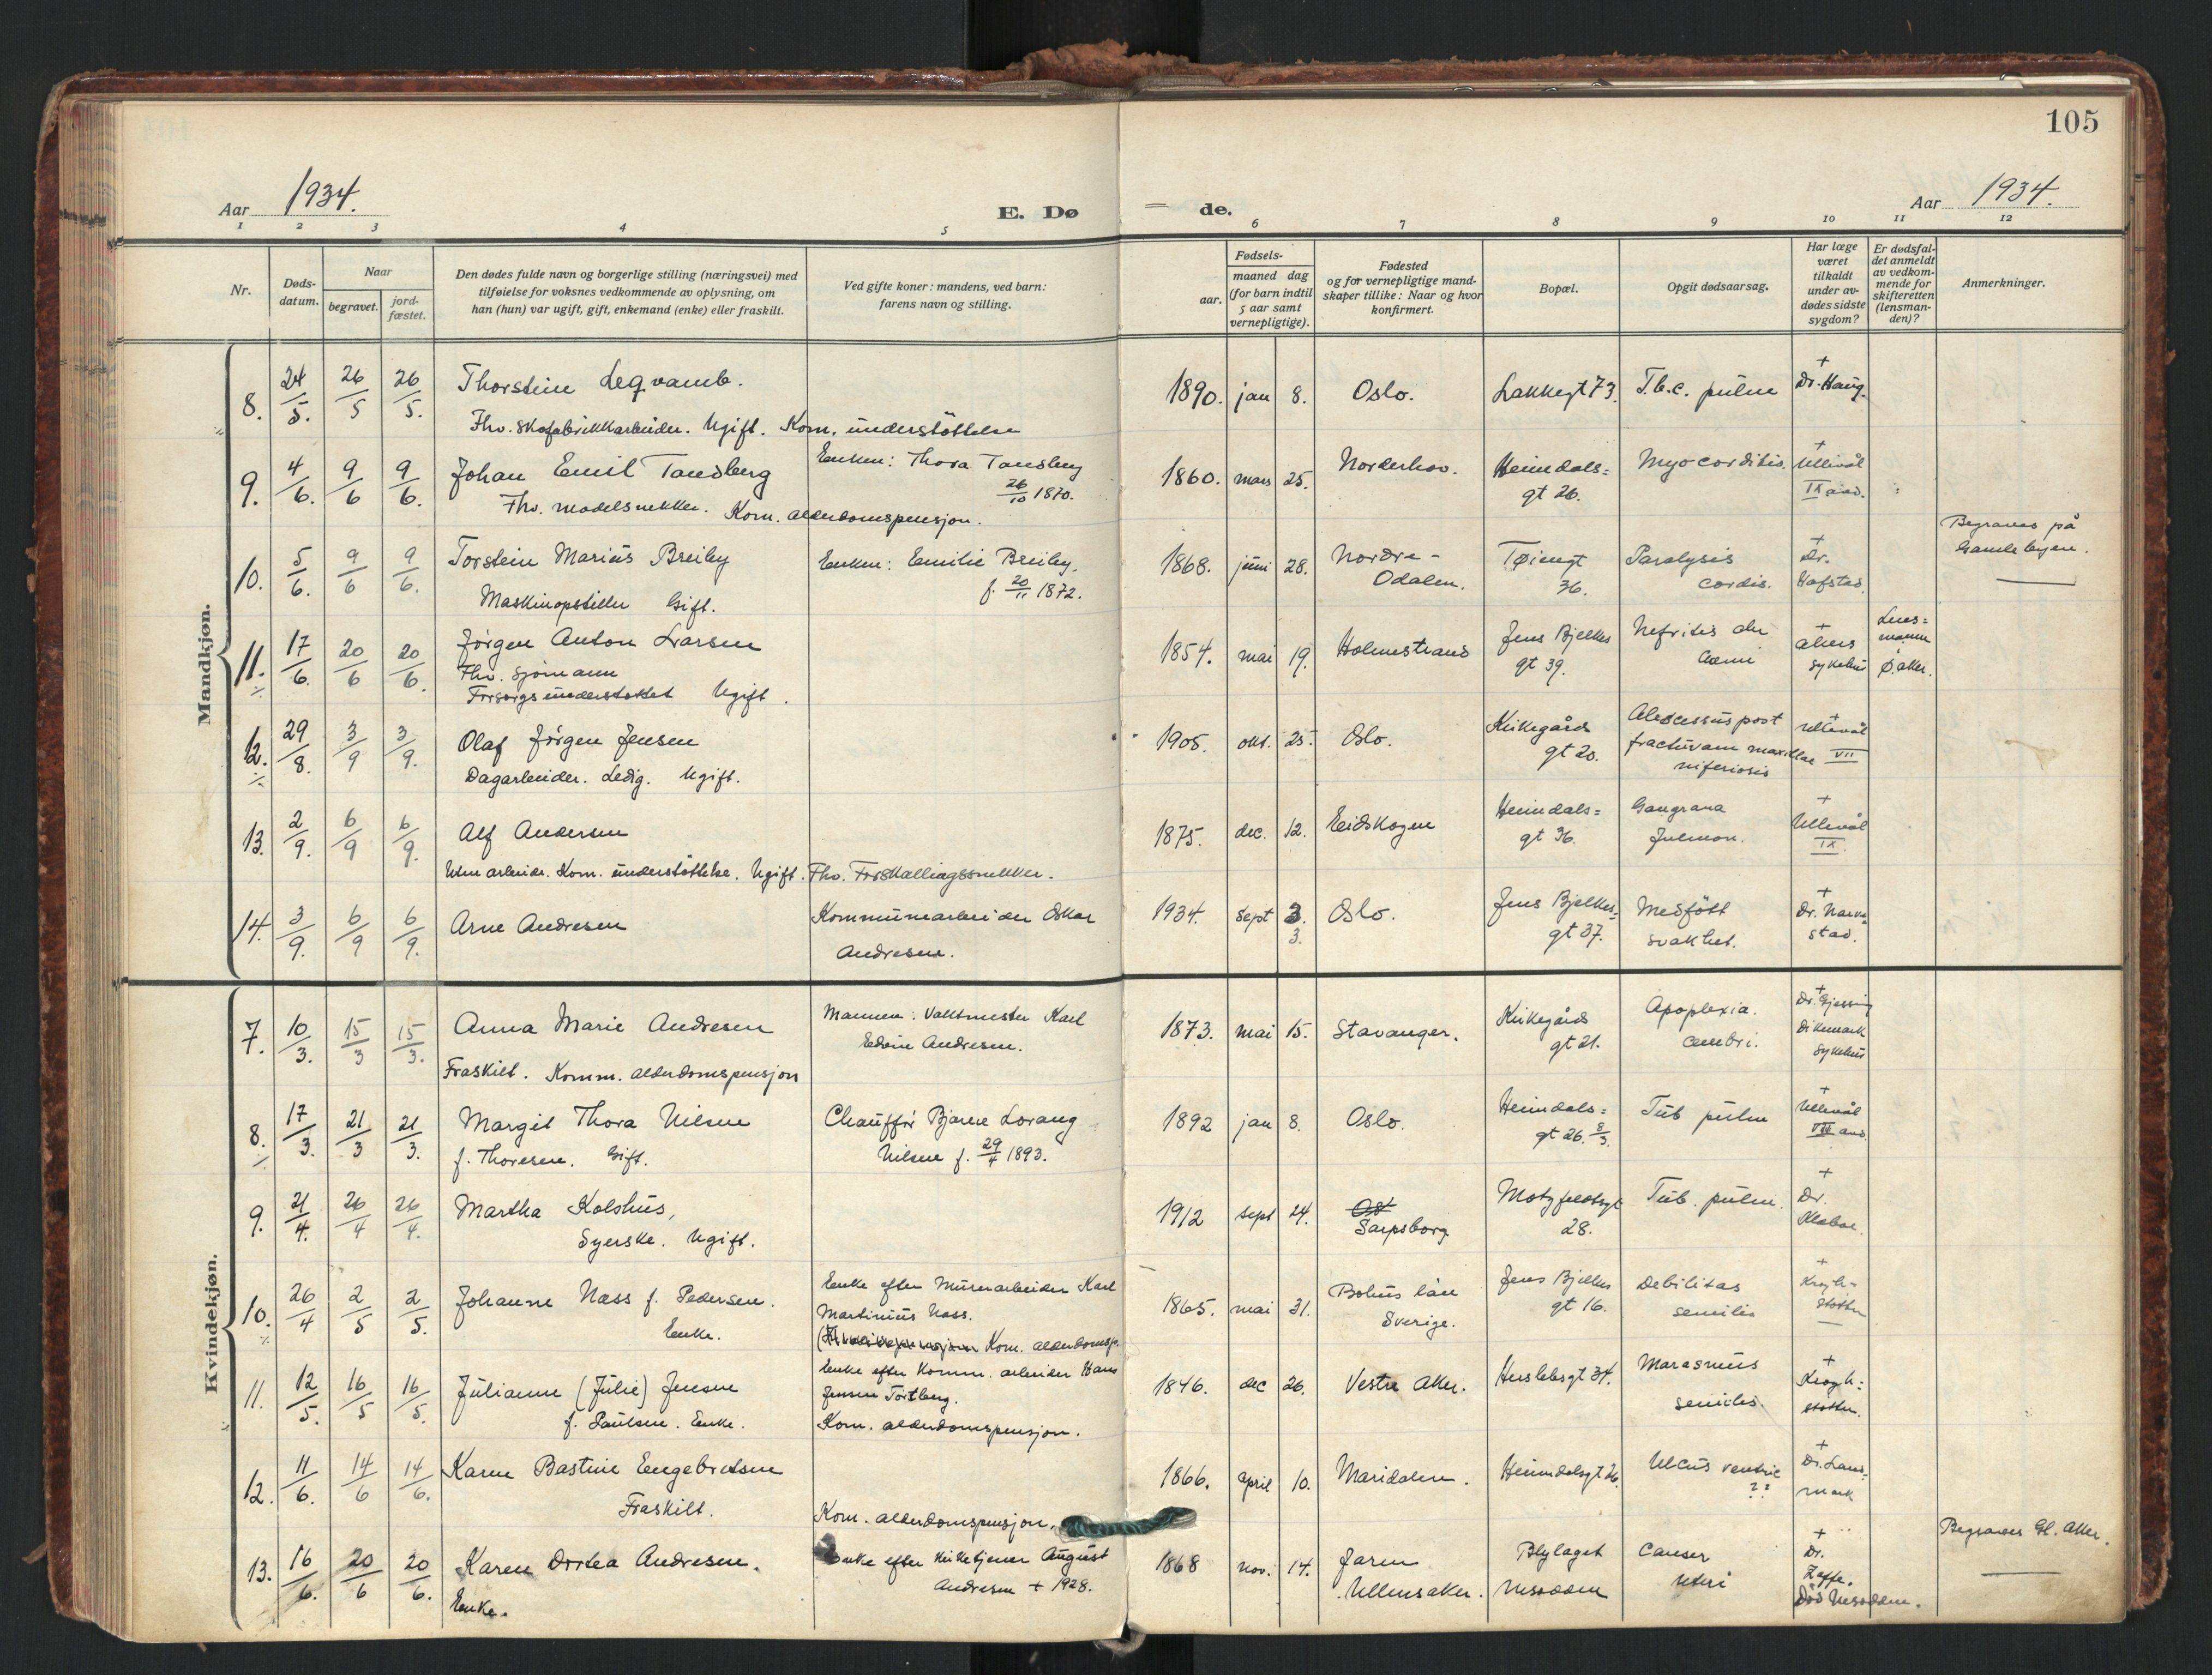 105
Aar 1934.
E. Dø
de.
Aar 1934.
1 2 3 4 5 6 7 8 9 10 11 12
Nr.
Døds-
datum.
Naar
begravet.
jord-
fæstet.
Den dødes fulde navn og borgerlige stilling (næringsvei) med
tilføielse for voksnes vedkommende av oplysning, om
han (hun) var ugift, gift, enkemand (enke) eller fraskilt.
Ved gifte koner: mandens, ved barn:
farens navn og stilling.
Fødsels-
aar.
maaned dag
(for barn indtil
5 aar samt
vernepligtige).
Fødested
og for vernepligtige mand-
skaper tillike: Naar og hvor
konfirmert.
Bopæl.
Opgit dødsaarsag.
Har læge
været
tilkaldt
under av-
dødes sidste
sygdom?
Er dødsfal-
det anmeldt
av vedkom-
mende for
skifteretten
(lensman-
den)?
Anmerkninger.
Mandkjøn.
8. 24/5. 26/5 26/5. Thorstein Leqvamb. 1890. jan 8. Oslo. Lakkegt 73. T.b.c. pulm + Dr. Haug.
Fhv. Skofabrikkarbeider. Ugift. Kom. understöttelse
9. 4/6. 9/6 9/6. Johan Emil Tandberg Enken: Thora Tandberg 1860. mars 25. Norderhov. Heimdals= Myocorditis. + Ullevål
26/10 1870. gt 26. IX avd.
Fhv. modelsnekker. Kom. alderdomspensjon.
10. 5/6. 9/6 9/6. Torstein Marius Breiby Enken: Emilie Breiby. 1868. juni 28. Nordre- Tøiengt Paralysis + Dr. Begraves på
Maskinopstiller Gift. f. 20/11 1872. Odalen. 36. cordis. Hofstad. Gamlebyen.
11. 17/6. 20/6 20/6. Jørgen Anton Larsen 1854. mai 19. Holmestrand Jens Bjelkes Nefritis chr + Akers Lens=
Fhv. sjømann gt 39. sykehus mann
Forsorgsunderstøttet Ugift. Ø. Aker.
12. 29/8. 3/9 3/9. Olaf Jørgen Jensen 1905. okt. 25. Oslo. Kirkegårds Abscessus post + Ullevål
Dagarbeider. Ledig. Ugift. gt 20. fracturam maxillae VII
inferioris
13. 2/9. 6/9 6/9. Alf Andersen 1875. dec. 12. Eidskogen Heimdals= Gangrana + Ullevål
gt 36. pulmon. IX.
Uten arbeide. Kom. understöttelse. Ugift. Fhv. Forskallingssnekker.
14. 3/9. 6/9 6/9. Arne Andresen Kommunearbeider Oskar 1934. Sept 3. Oslo. Jens Bjelkes Medfött + Dr. Narve-
Andresen. 3. gt 37. svakhet. stad.
Kvindekjøn.
7. 10/3. 15/3 15/3. Anna Marie Andresen Mannen: Vaktmester Karl 1873. mai 15. Stavanger. Kirkegårds Apoplexia + Dr. Gjessing
Edvin Andresen. gt 21. cerebri. Dikemark
Fraskilt. Komm. alderdomspensjon sykehus
8. 17/3. 21/3 21/3. Margit Thora Nilsen Chauffør Bjarne Lorang 1892 jan 8. Oslo. Heimdals= Tub pulm + Ullevål
f. Thoresen. Gift. Nilsen f. 29/4 1893. gt 26. 8/3. VIII avd.
9. 21/4. 26/4 26/4. Martha Kolshus, 1912 sept 24. Sarpsborg Motzfeldtsgt Tub. pulm. + Dr.
Syerske. Ugift. 28. Klaboe.
10. 26/4 2/5 2/5. Johanne Næss f. Pedersen. Enke efter Murerarbeider Karl 1865. mai 31. Bohus län Jens Bjelkes Debilitas + Krogh=
Enke. Martinius Næss. Sverige. gt 16. senilis støtten
Kom. alderdomsp.
11. 12/5. 16/5 16/5. Julianne (Julie) Jensen Enke efter Komm. arbeider Hans 1846. dec 26. Vestre Aker. Herslebsgt 34. Marasmus + Krogh=
f. Paulsen. Enke. Jensen Tortberg. senilis. støtten.
Kom. alderdomspensjon.
12. 11/6. 14/6 14/6. Karen Bastine Engebretsen 1866. april 10. Maridalen. Heimdalsgt 26. Ulcus ventric + Dr. Land-
Fraskilt. ?? mark
Kom. alderdomspensjon.
13. 16/6. 20/6 20/6. Karen Dortea Andresen. Enke efter kirketjener August 1868 nov. 14. Jaren Blylaget Cancer + Dr. Begraves Gl. Aker.
Enke. Andresen + 1928. Ullensaker. Nesodden uteri Zeffe.
Död Nesodden.